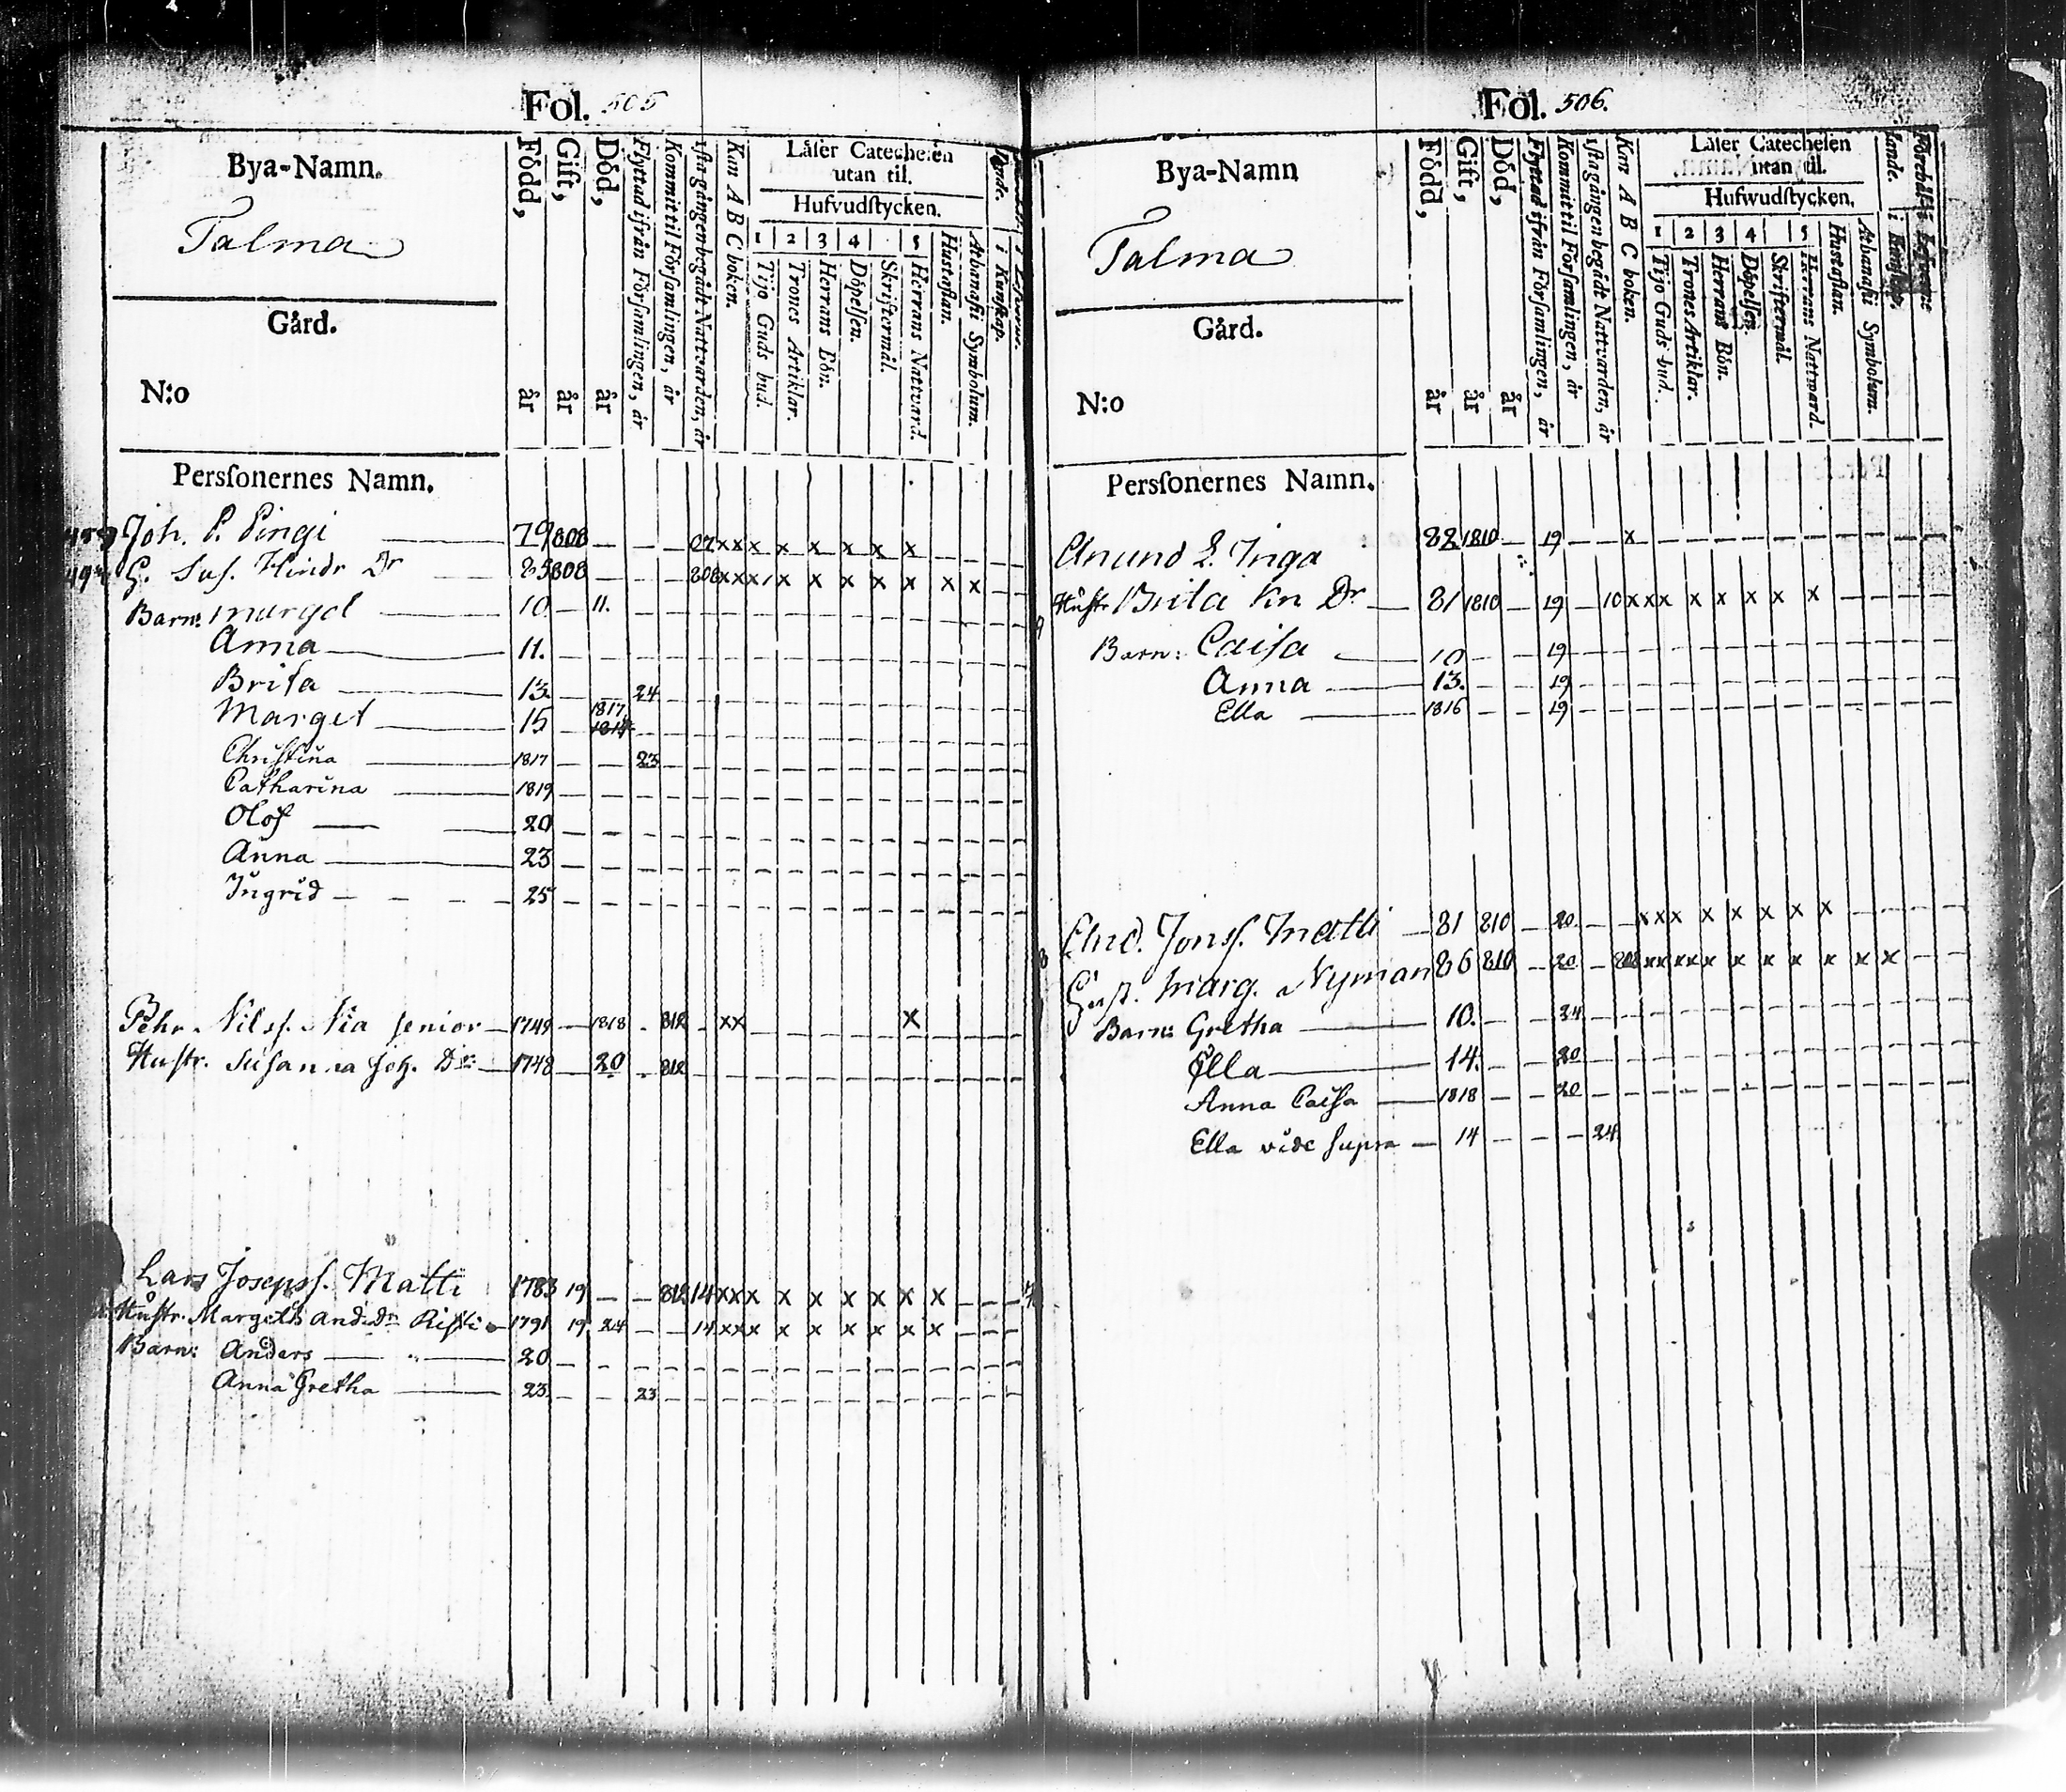 Fol. 505
Bya-Namn.
Talma
Gård.
N:o
Persſonernes Namn.
Född, år
Gift, år
Död, år
Flyttad ifrån Förſamlingen, år
Kommit til Förſamlingen, år
1ſta gången begådt Nattvarden, år
Kan A B C boken.
Läſer Catecheſen
utan til.
Hufvudſtycken.
1 2 3 4 5
Tijo Guds bud.
Trones Artiklar.
Herrans Bön.
Döpelſen.
Skriftermål.
Herrans Nattvard.
Huſtaflan.
Athanaſii Symbolum.
i Kunſkap.
Joh. P. Pingi 79 808 — — — 07 xxx x x x x x
H. Suſ. Hindr Dr 85 808 — — — 808 xxx x x x x x x x
Barn: Marget 10 — 11.
Anna 11.
Brita 13. — — 24
Marget 15 — 1817 1814
Chriſtina 1817 — — 23
Catharina 1819
Olof 20
Anna 23
Ingrid 25
Pehr Nilsſ. Nia ſenior 1749 — 1818 — 812 — xx x
Huſtr. Suſanna Joh. Dr 1748 — 20 — 812
Lars Josepsſ. Matti 1783 19 — — 812 14 xxx x x x x x x
Huſtr. Margeth And. Dr Riſti 1791 19 24 — — 14 xxx x x x x x x
Barn: Anders 20
Anna Gretha 23 — — 23
Fol. 506.
Bya-Namn
Talma
Gård.
N:o
Persſonernes Namn.
Född, år
Gift, år
Död, år
Flyttad ifrån Förſamlingen, år
Kommit til Förſamlingen, år
1ſta gången begådt Nattvarden, år
Kan A B C boken.
Läſer Catecheſen
utan til.
Hufwudſtycken.
1 2 3 4 5
Tijo Guds bud.
Trones Artiklar.
Herrans Bön.
Döpelſen.
Skriftermål.
Herrans Nattward.
Huſtaflan.
Athanaſii Symbolum.
Anund L. Inga 82 1810 — 19 — — x
Huſtr Brita Kn Dr 81 1810 — 19 — 10 xxx x x x x x
Barn: Caiſa 10 — — 19
Anna 13. — — 19
Ella 1816 — — 19
And. Jonsſ. Matti 81 810 — 20 — — xxx x x x x x
Marg. Nyman 86 810 — 20 — 808 xxxxx x x x x x x
Barn: Gretha 10. — — 24
Ella 14. — — 20
Anna Caiſa 1818 — — 20
Ella vide ſupra 14 — — — 24